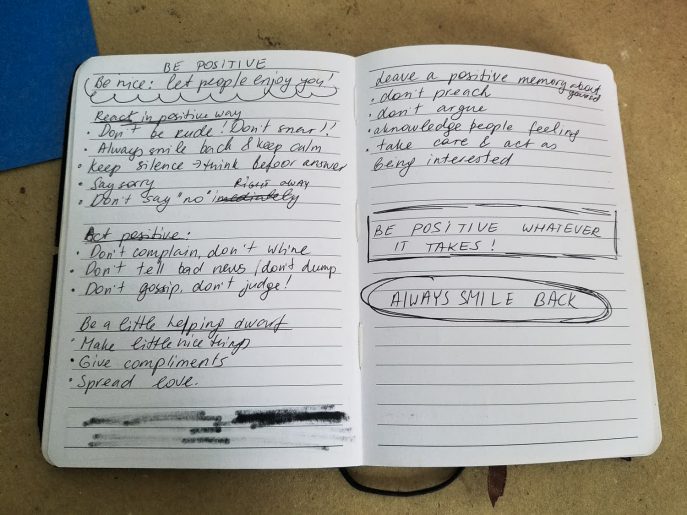 BE POSITIVE
Be nice: let people enjoy you!
React in positive way
• Don't be rude! Don't snarl!
• Always smile back & keep calm
• Keep silence → think befoor answer
• Say sorry
• Don't say "no" imediately RIGHT AWAY
Act positive:
• Don't complain, don't whine
• Don't tell bad news / don't dump
• Don't gossip, don't judge!
Be a little helping dwarf
• Make little nice things
• Give compliments
• Spread love.
Leave a positive memory about
• don't preach
• don't argue
• aknowledge people feeling
• take care & act as
being interested
BE POSITIVE WHATEVER
IT TAKES!
ALWAYS SMILE BACK